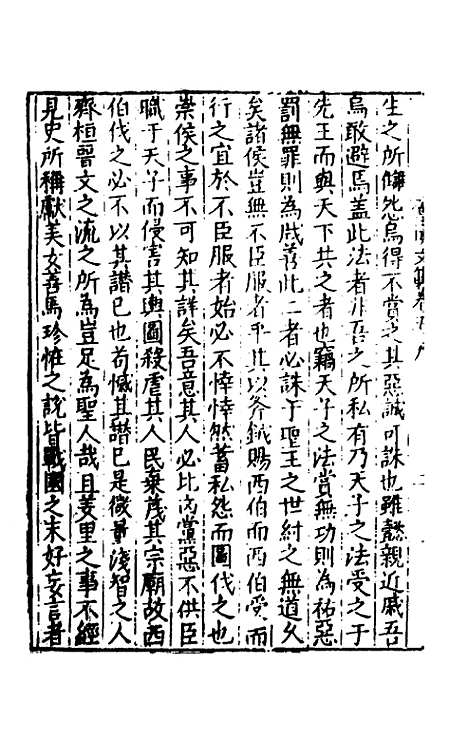 生之所憎怨烏得不賞之其惡誠可誅也雖懿親近戚吾
烏敢避焉蓋此法者非吾之所私有乃天子之法受之于
先王而與天下共之者也竊天子之法賞無功則為祐惡
罰無罪則為戕善此二者必誅于聖王之世紂之無道久
矣諸侯豈無不臣服者乎其以斧鉞賜西伯而西伯受而
行之宜於不臣服者始必不悻悻然蓄私怨而圖伐之也
崇侯之事不可知其詳矣吾意其人必比內黨惡不供臣
職于天子而侵害其輿圖殺虐其人民棄蔑其宗廟故西
伯伐之必不以其譖已也苟憾其譖已是微量淺智之人
齊桓晉文之流之所為豈足為聖人哉且羑里之事不經
見史所稱獻美女善馬珍恠之說皆戰國之末好妄言者